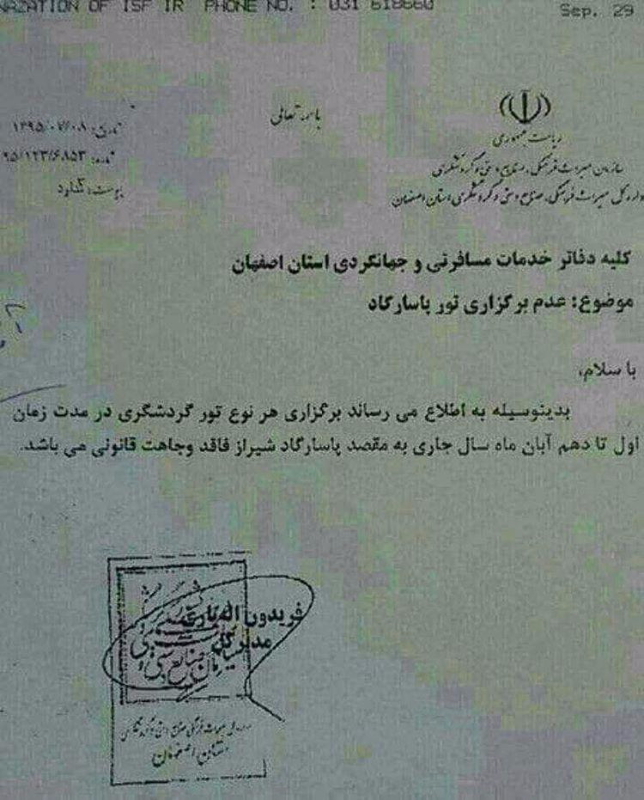 NAZATION OF ISF IR PHONE NO. : 031 618660
Sep. 29
باسمه تعالی
ریاست جمهوری
سازمان میراث فرهنگی، صنایع دستی و گردشگری
اداره کل میراث فرهنگی، صنایع دستی و گردشگری استان اصفهان
تاریخ: ۱۳۹۵/۰۷/۰۸
شماره: ۹۵/۱۲۳/۶۸۵۳
پیوست: ندارد
کلیه دفاتر خدمات مسافرتی و جهانگردی استان اصفهان
موضوع: عدم برگزاری تور پاسارگاد
با سلام،
بدینوسیله به اطلاع می رساند برگزاری هر نوع تور گردشگری در مدت زمان
اول تا دهم آبان ماه سال جاری به مقصد پاسارگاد شیراز فاقد وجاهت قانونی می باشد.
فریدون اله‌یاری
مدیر کل
استان اصفهان